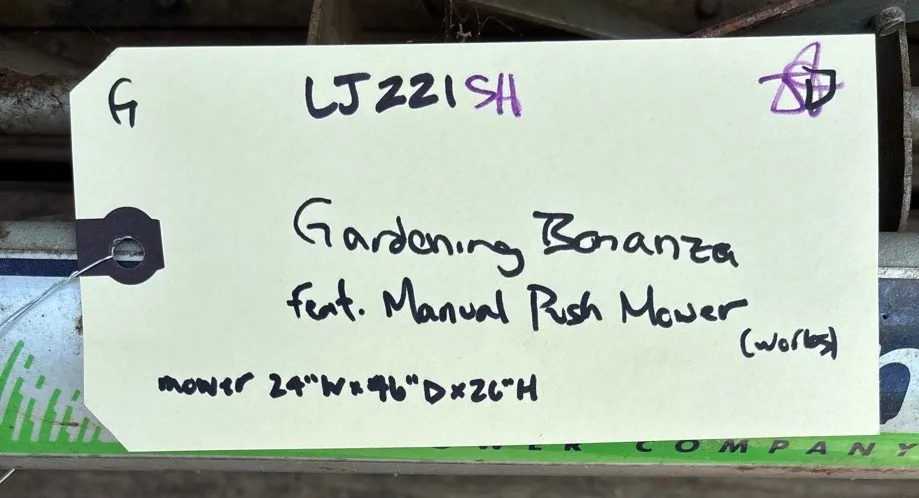 G LJ221SH D
Gardening Bonanza
feat. Manual Push Mower
(works)
mower 24"W x 46"D x 26"H
COMPANY